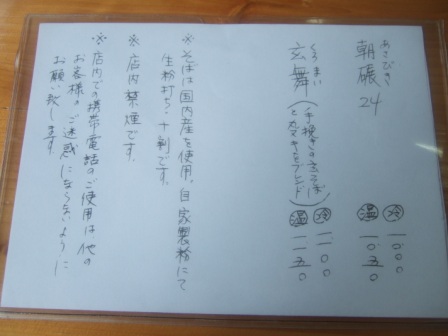 あさびき
朝碾 24
冷 一〇〇〇
温 一〇五〇
くろ まい
玄舞(手挽きの玄そば
とカラヌキをブレンド)
冷 一一〇〇
温 一一五〇
※そばは国内産を使用。自家製粉にて
生粉打ち・十割です。
※店内禁煙です。
※店内での携帯電話のご使用は他の
お客様のご迷惑にならないように
お願い致します。